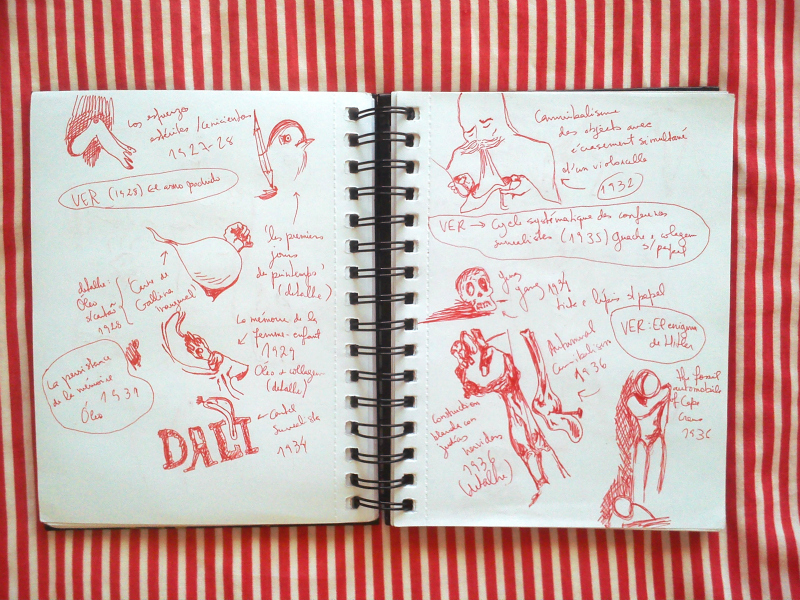 Los esfuerzos
estériles/Cenicientas
1927-28
VER (1928) El asno podrido
'les premiers
jours
de printemps'
(detalle)
detalhe:
Óleo
s/cartão
1928
Curso de
Gallina
La mémoire de la
femme-enfant
1929
Óleo + collagem
(detalle)
La persistance
de la mémoire
1931
Óleo
DALI
Cartel
Surrealista
1934
Cannibalisme
des objects avec
écrasement simultané
d'un violoncelle
1932
VER → Cycle systématique des conférences
surréalistes (1935) guache e colagem
s/papel
gang 1934
tinta e lápis s/papel
VER: El enigma
de Hitler
Autumnal
Cannibalism
1936
Construction
blanda con
judías
hervidas
1936
(detalhe)
automobile
of Cape
Creus
1936